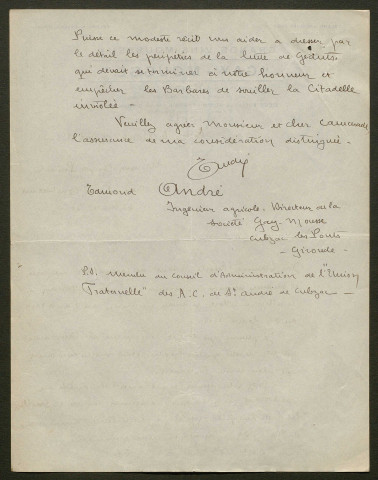 Puisse ce modeste récit vous aider à dresser par
le détail les péripéties de la lutte de Géants
qui devait se terminer à notre honneur et
empêcher les Barbares de souiller la Citadelle
inviolée -
Veuillez agréer, Monsieur et cher Camarade,
l'assurance de ma considération distinguée -
André
Edmond André
Ingénieur agricole - Directeur de la
Société Gray Mousse
Cubzac les Ponts
- Gironde -
P.S. Membre du Conseil d'Administration de l'"Union
Fraternelle" des A.C. de St André de Cubzac -